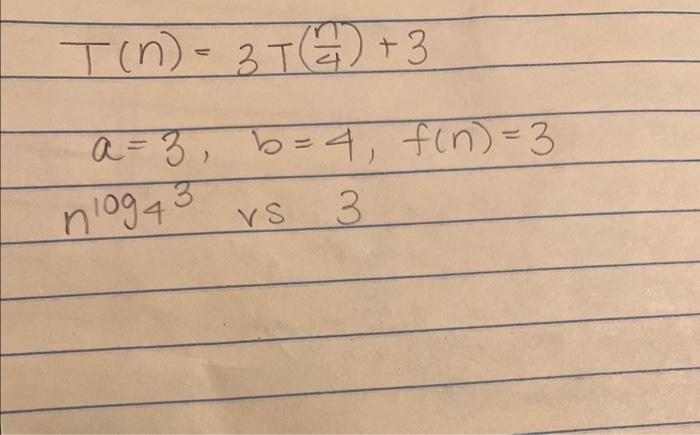 T(n) = 3T(n/4) + 3
a = 3, b = 4, f(n) = 3
n^log₄3 vs 3